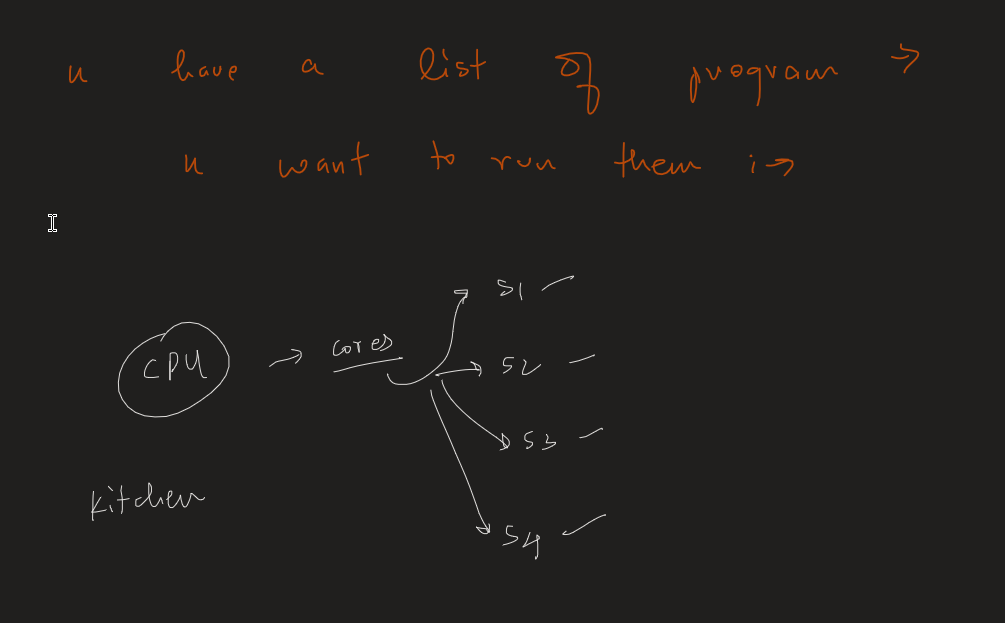 u have a list of program →
u want to run them :→
CPU → cores
S1
S2
S3
S4
Kitchen